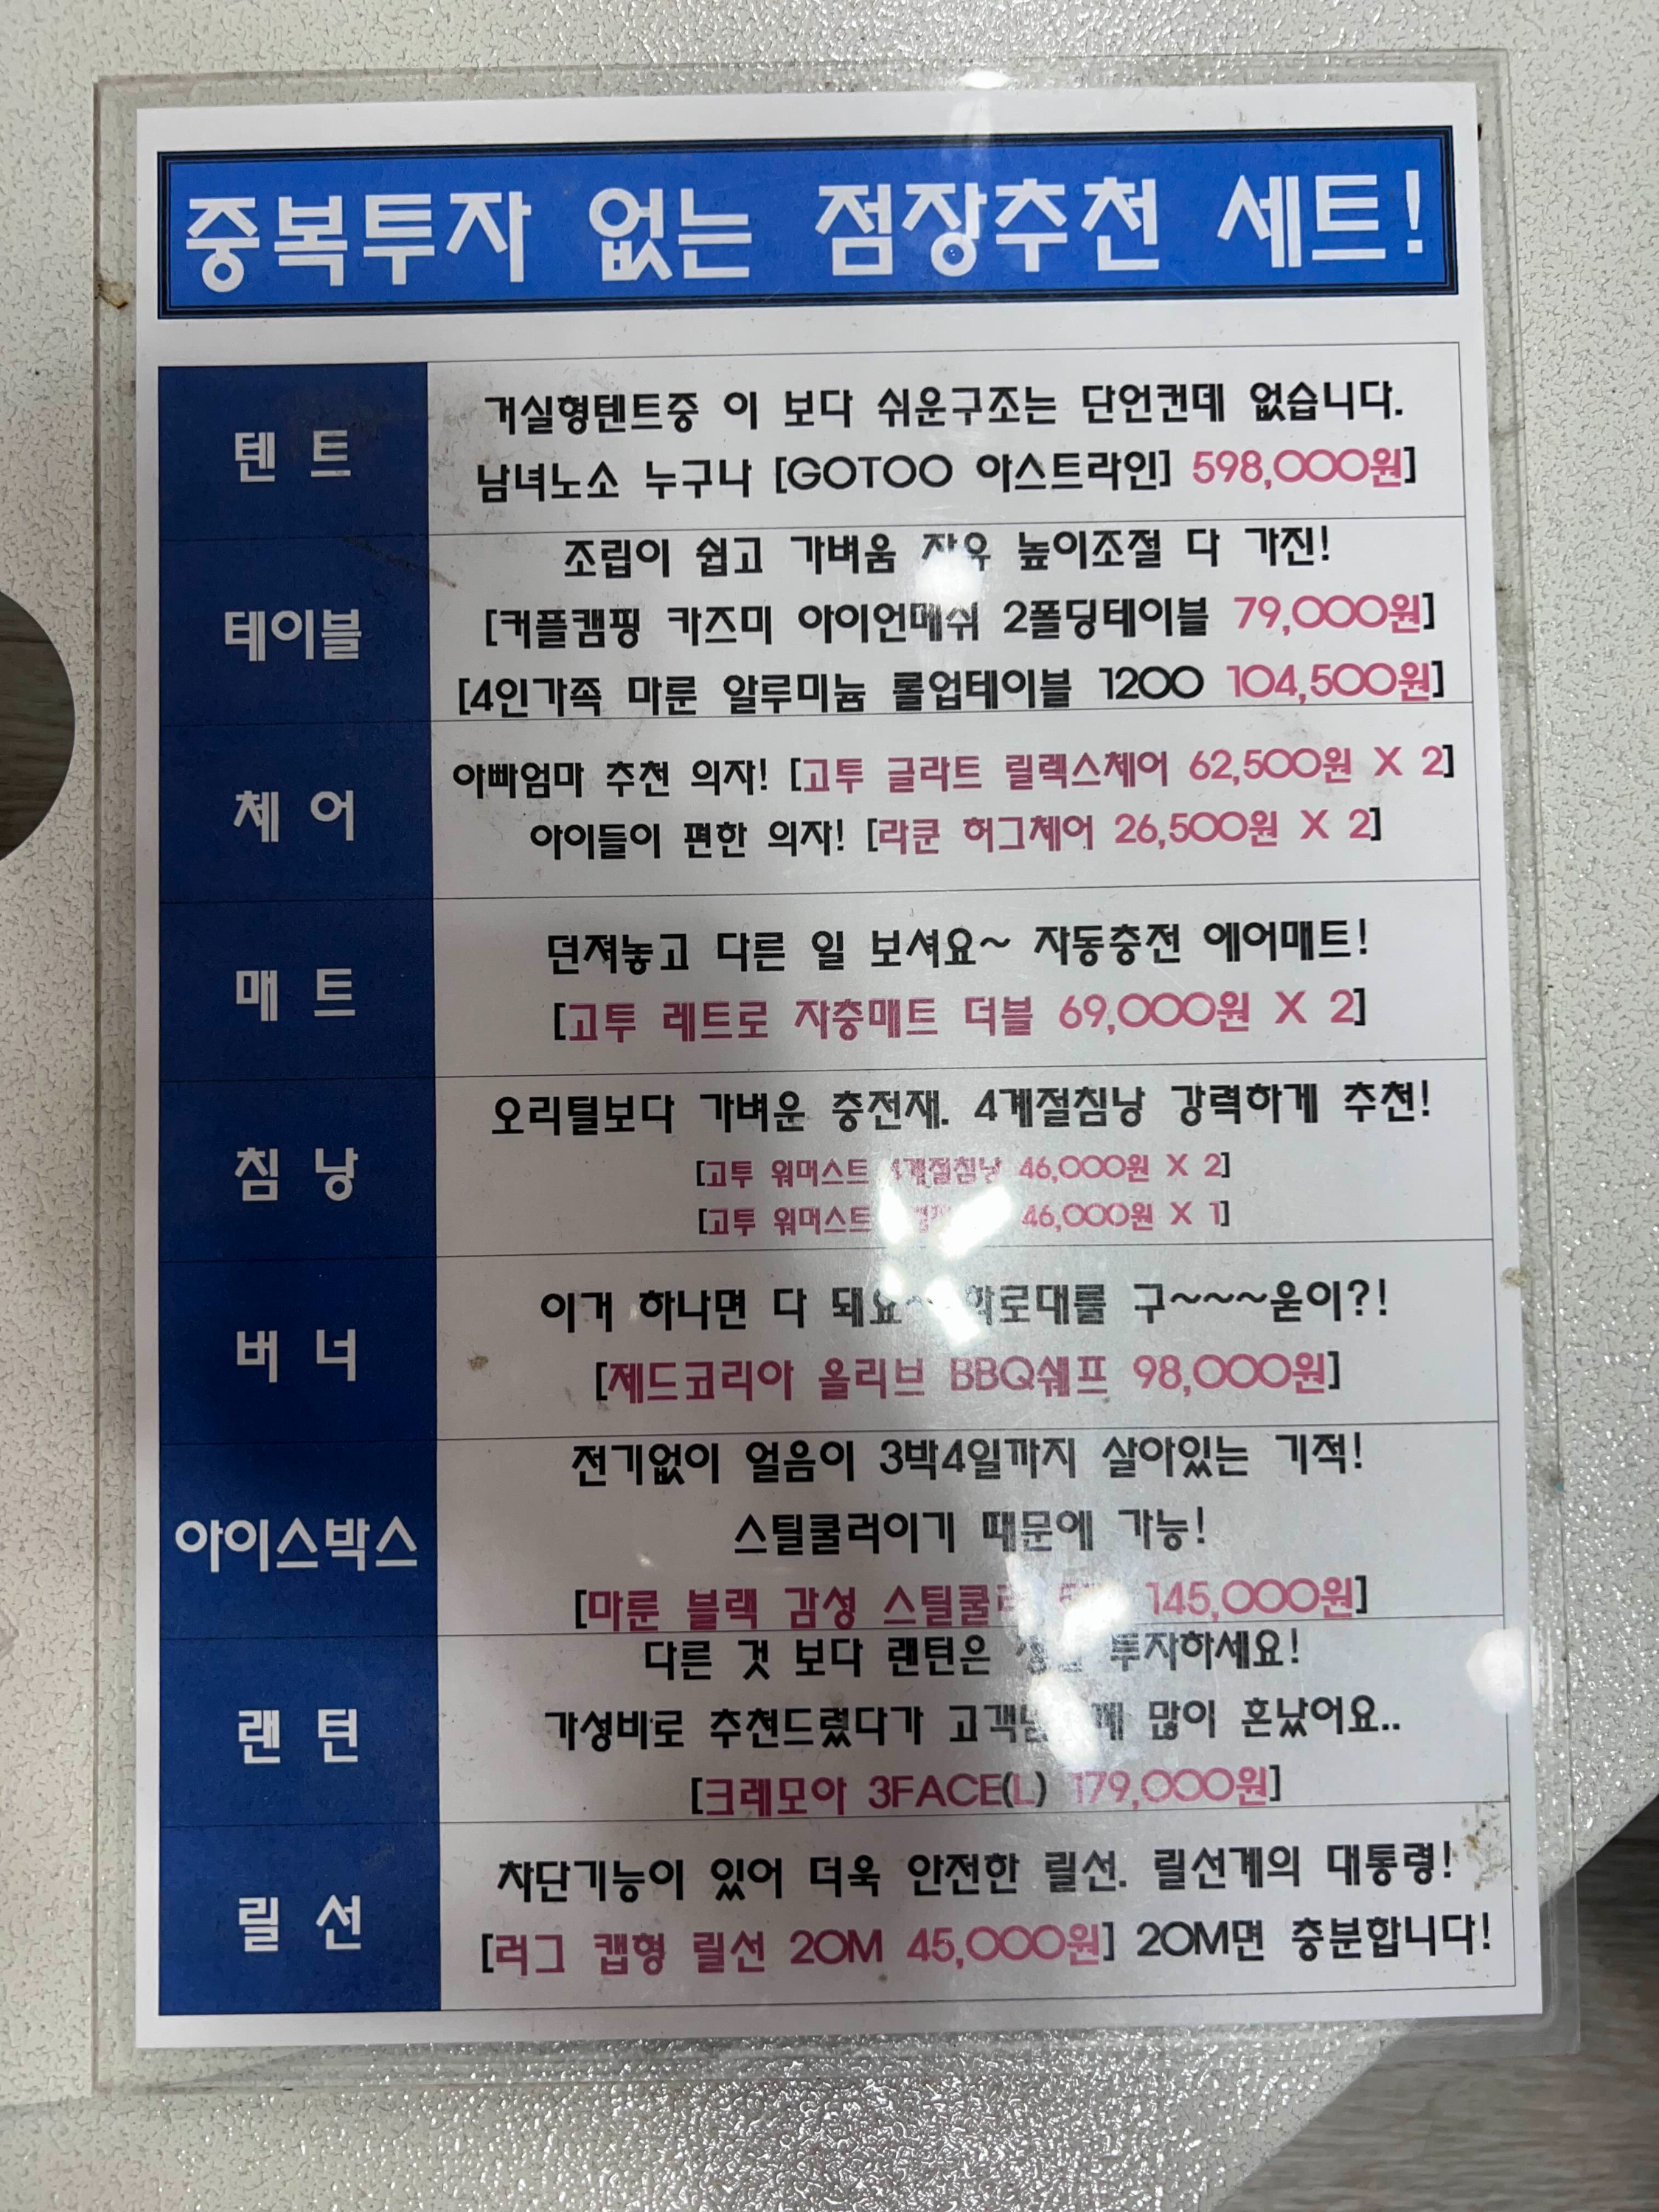 중복투자 없는 점장추천 세트!
텐 트
거실형텐트중 이 보다 쉬운구조는 단언컨데 없습니다.
남녀노소 누구나 [GOTOO 아스트라인] 598,000원]
테이블
조립이 쉽고 가벼움 자유 높이조절 다 가진!
[커플캠핑 카즈미 아이언메쉬 2폴딩테이블 79,000원]
[4인가족 마룬 알루미늄 롤업테이블 1200 104,500원]
체 어
아빠엄마 추천 의자! [고투 글라트 릴렉스체어 62,500원 X 2]
아이들이 편한 의자! [라쿤 허그체어 26,500원 X 2]
매 트
던져놓고 다른 일 보셔요~ 자동충전 에어매트!
[고투 레트로 자충매트 더블 69,000원 X 2]
침 낭
오리털보다 가벼운 충전재. 4계절침낭 강력하게 추천!
[고투 워머스트 4계절침낭 46,000원 X 2]
[고투 워머스트 46,000원 X 1]
버 너
이거 하나면 다 돼요~ 화로대를 구~~~욷이?!
[제드코리아 올리브 BBQ쉐프 98,000원]
아이스박스
전기없이 얼음이 3박4일까지 살아있는 기적!
스틸쿨러이기 때문에 가능!
[마룬 블랙 감성 스틸쿨러 145,000원]
랜 턴
다른 것 보다 랜턴은 투자하세요!
가성비로 추천드렸다가 많이 혼났어요..
[크레모아 3FACE(L) 179,000원]
릴 선
차단기능이 있어 더욱 안전한 릴선. 릴선계의 대통령!
[러그 캡형 릴선 20M 45,000원] 20M면 충분합니다!